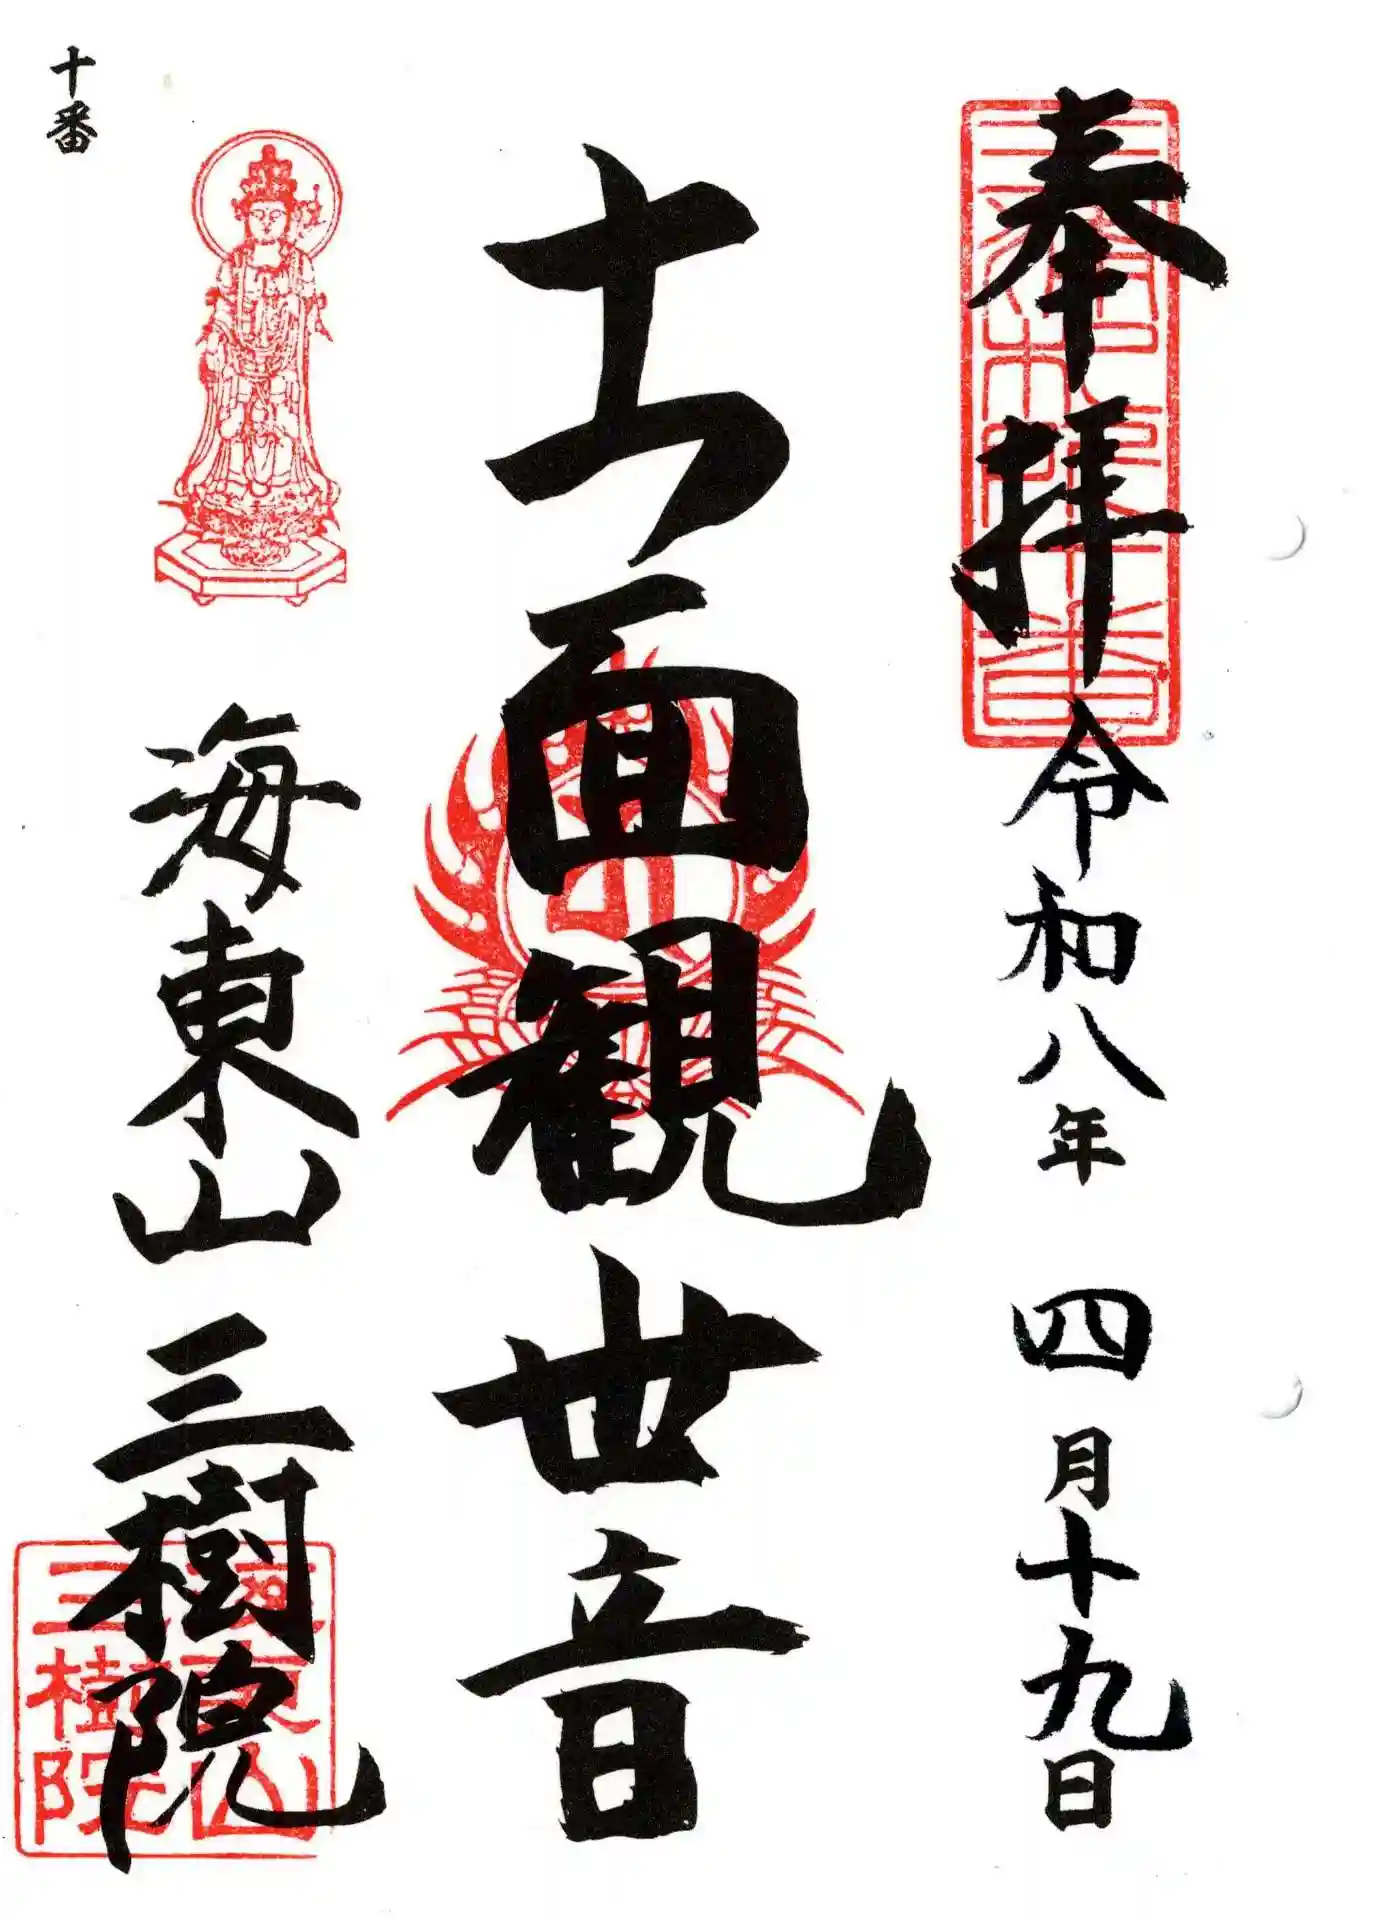 奉拝 令和八年 四月十九日
十一面観世音
海東山 三樹院
十番
海東山
三樹院